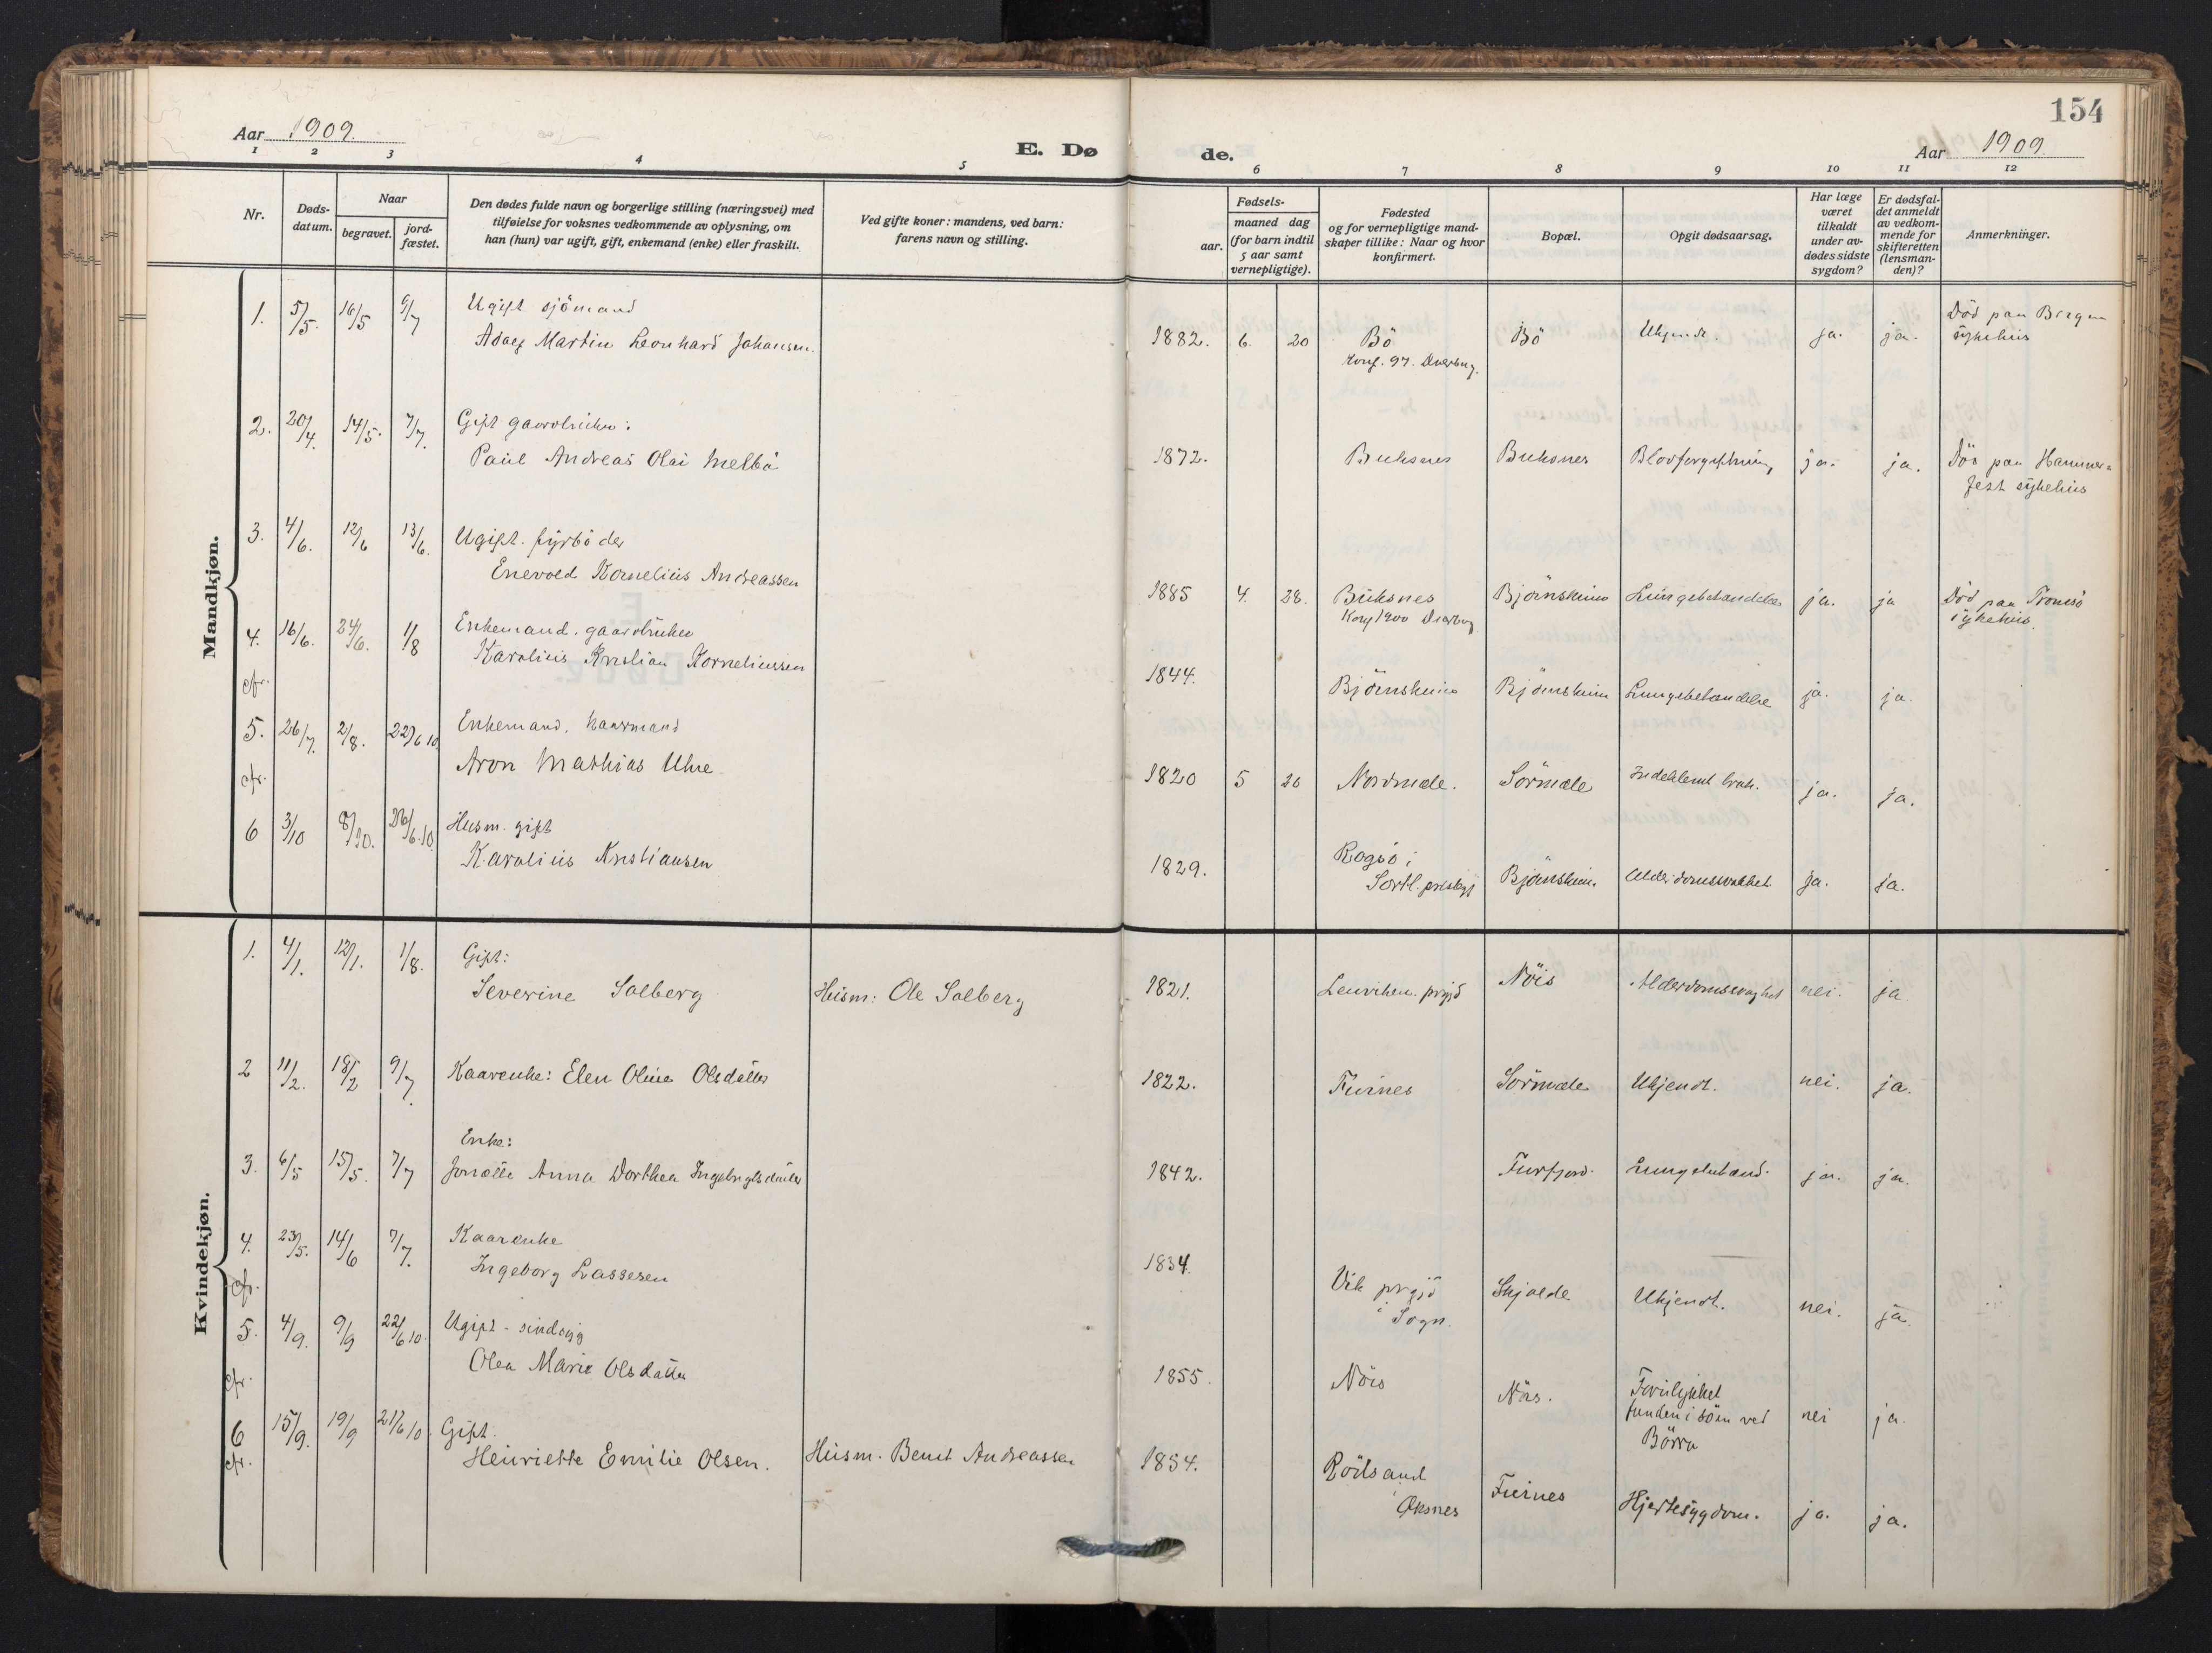 154
Aar 1909.
E. Dø
de.
Aar 1909.
1 2 3 4 5 6 7 8 9 10 11 12
Nr.
Døds-
datum.
Naar
begravet.
jord-
fæstet.
Den dødes fulde navn og borgerlige stilling (næringsvei) med
tilføielse for voksnes vedkommende av oplysning, om
han (hun) var ugift, gift, enkemand (enke) eller fraskilt.
Ved gifte koner: mandens, ved barn:
farens navn og stilling.
Fødsels-
aar.
maaned dag
(for barn indtil
5 aar samt
vernepligtige).
Fødested
og for vernepligtige mand-
skaper tillike: Naar og hvor
konfirmert.
Bopæl.
Opgit dødsaarsag.
Har læge
været
tilkaldt
under av-
dødes sidste
sygdom?
Er dødsfal-
det anmeldt
av vedkom-
mende for
skifteretten
(lensman-
den)?
Anmerkninger.
Mandkjøn.
1. 5/5. 16/5 9/7 Ugift sjömand
Adolf Martin Leonhard Johansen.
1882. 6. 20 Bö Bö Ukjendt. ja. ja. Död paa Bergen
sykehus
konf. 97. Dverberg.
2. 20/4. 14/5. 7/7. Gift gaardbruker:
Paul Andreas Olai Melbö
1872. Buksnes Buksnes Blodforgiftning ja. ja. Död paa Hammer-
fest sykehus
3. 4/6. 12/6 13/6. Ugift. fyrböder
Enevold Kornelius Andreassen
1885 4. 28. Buksnes Björnskinn Lungebetændelse ja. ja Död paa Tromsö
sykehus.
Konf 1900 Dverberg
4. 16/6. 24/6. 1/8 Enkemand. gaardbruker
Karolius Kristian Korneliussen
cfr.
1844. Björnskinn Björnskinn Lungebetændelse ja. ja.
5. 26/7. 2/8. 22/6 10. Enkemand. kaarmand
Aron Mathias Uhre
cfr.
1820 5 26 Nordmæle. Sörmæle Indeklemt brok. ja. ja.
6 3/10 8/10. 26/6.10. Husm. gift
Karolius Kristiansen
1829. Rogsö i
Sortl. prestegj Björnskin. Alderdomssvakhet. ja. ja.
Kvindekjøn.
1. 4/1. 12/1. 1/8. Gift:
Severine Solberg Husm: Ole Solberg
1821. Lenviken. prgjd Nöis Alderdomssvaghet nei. ja
2 11/2. 18/2 9/7. Kaarenke: Elen Oline Olsdatter
1822. Furnes Sörmæle Ukjendt. nei. ja.
Enke:
3. 6/5 15/5. 7/7 Jonelle Anna Dorthea Ingebrigtsdatter
1842. Furfjord. Lungebetænd. ja. ja.
4. 23/5. 14/6 7/7. Kaarenke
Ingeborg Lassesen
cfr.
1834. Vik prgjd
i Sogn. Skjolde Ukjendt. nei. ja.
5. 4/9. 9/9 22/6 10. Ugift - sindssyg
Olea Marie Olsdatter
cfr.
1855. Nöis Nöis. Forulykket
funden i söen ved
Börra nei ja.
6 15/9. 19/9 21/6 10. Gift.
cfr.
Henriette Emilie Olsen. Husm. Bernt Andreassen
1854. Rödsand
i Øksnes Furnes Hjertesygdom. ja. ja.